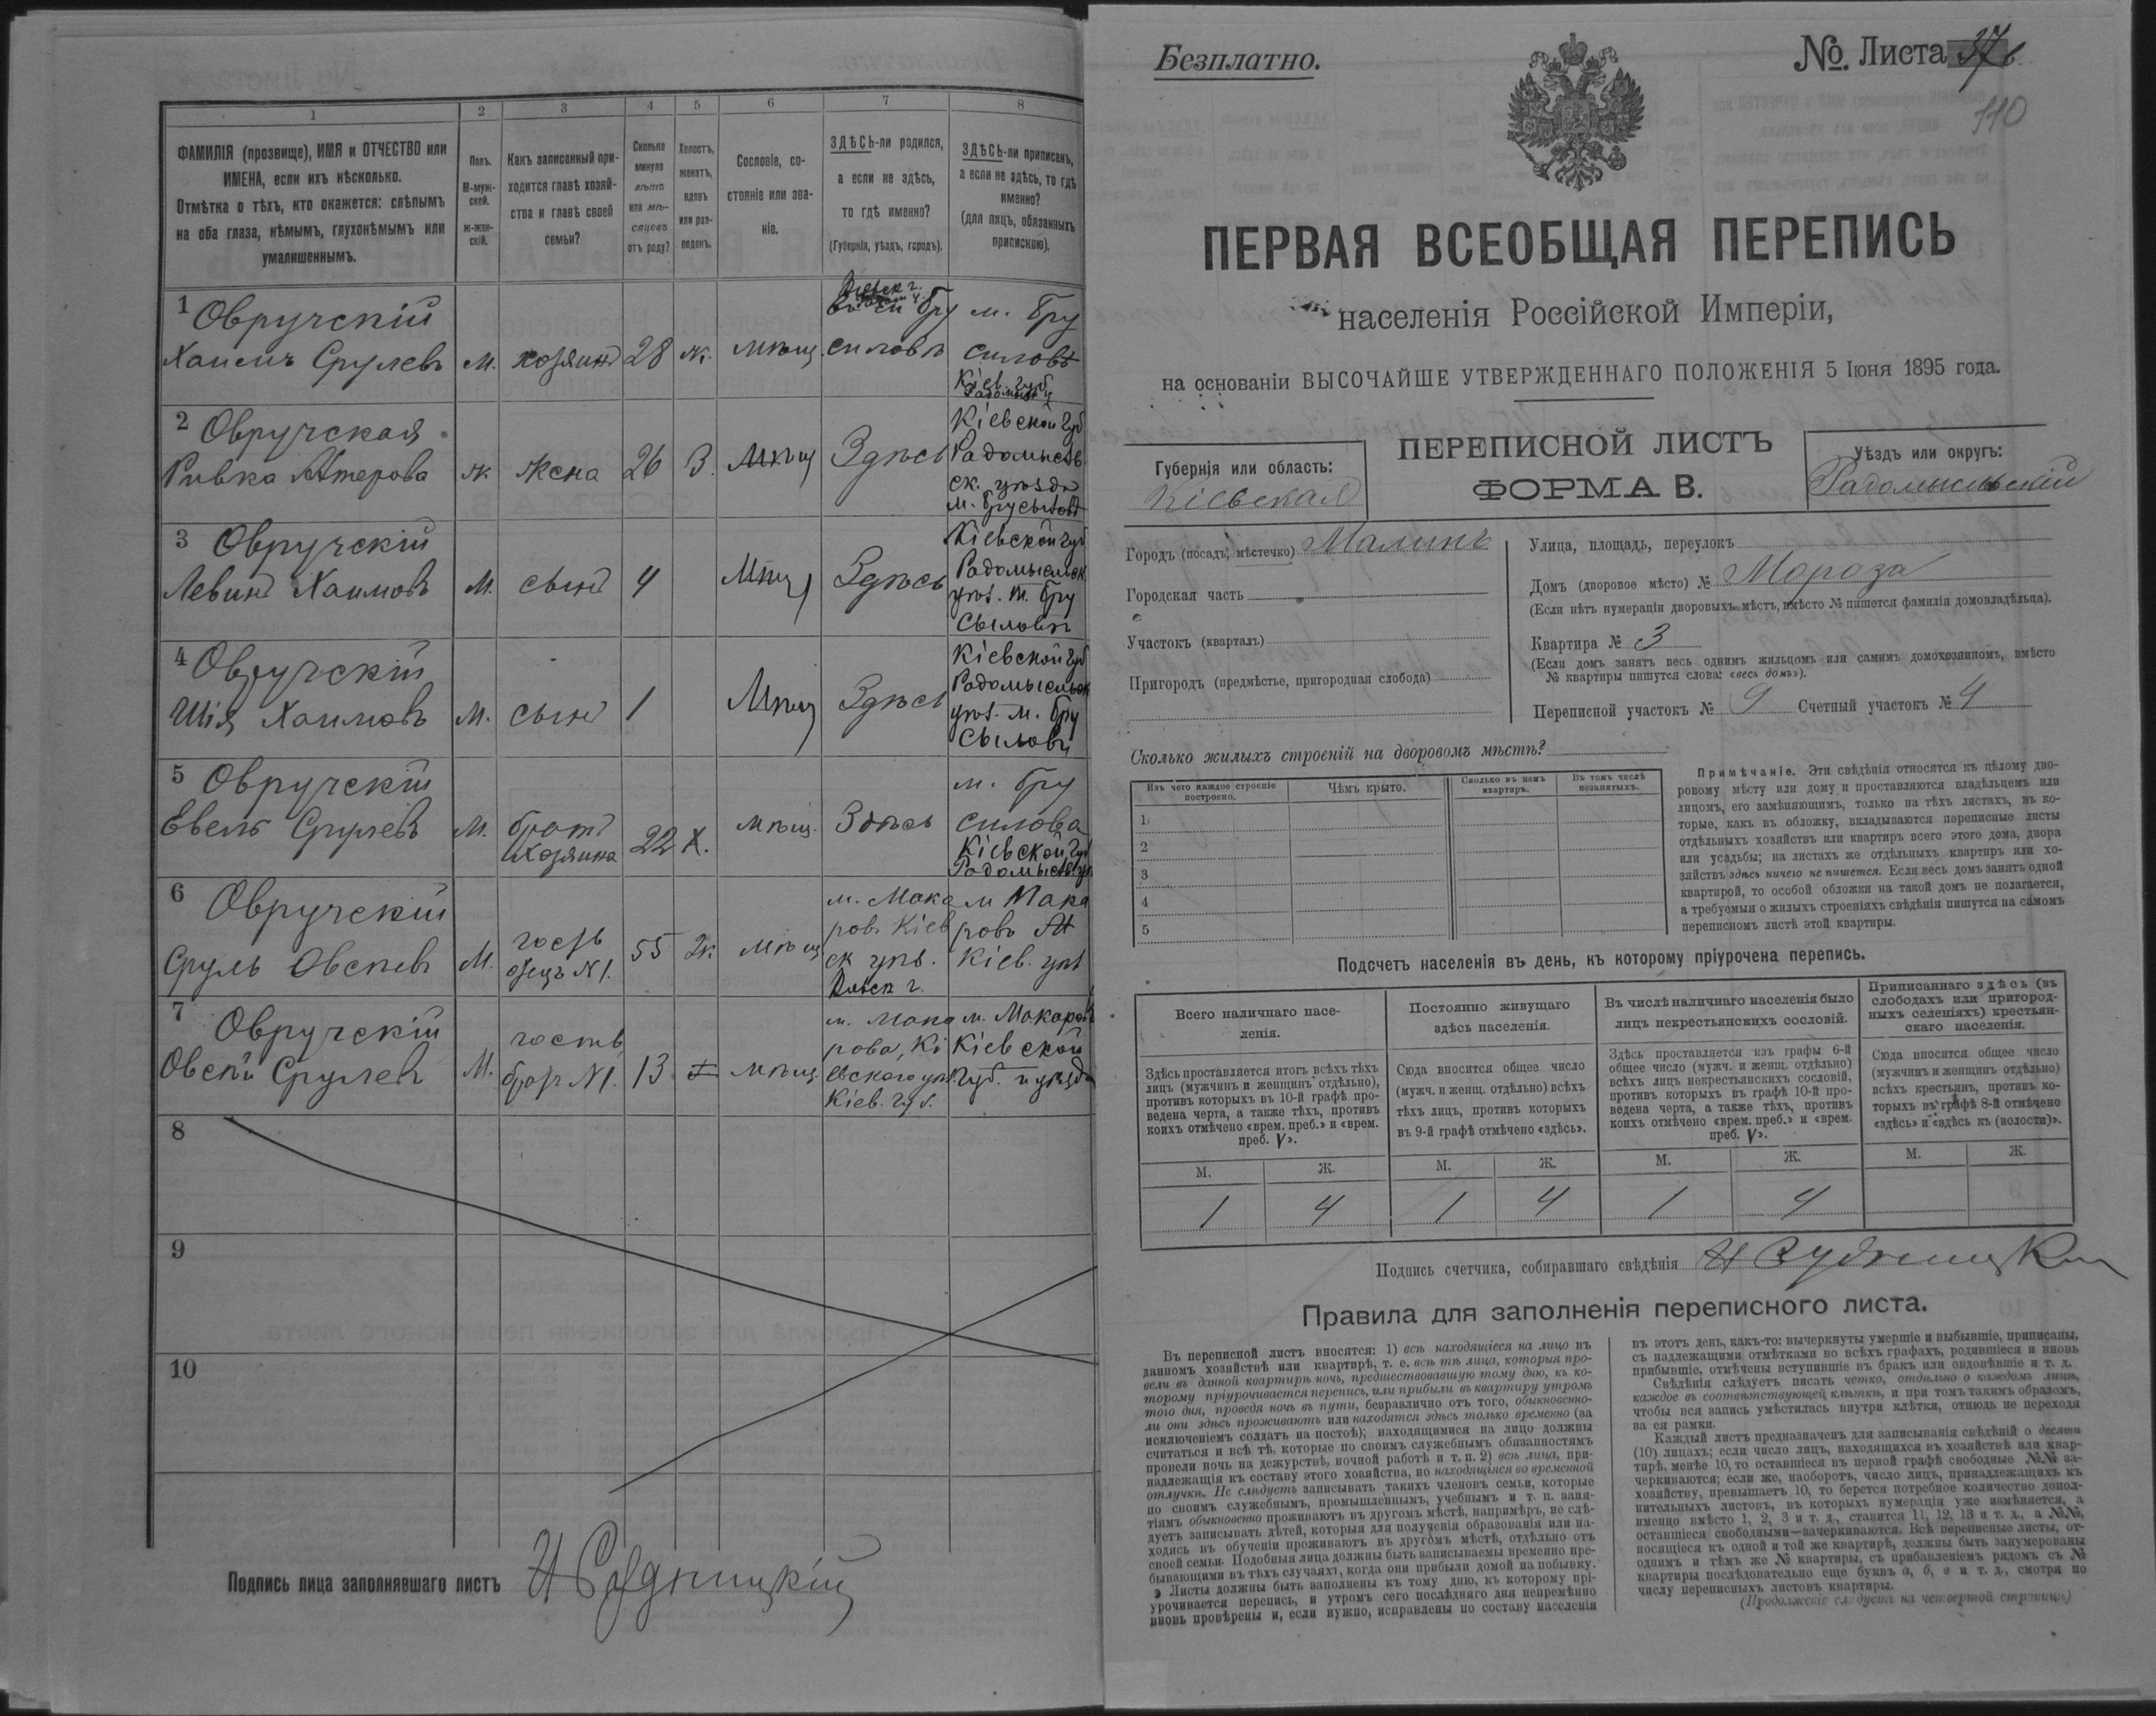 1 2 3 4 5 6 7 8
ФАМИЛІЯ (прозвище), ИМЯ и ОТЧЕСТВО или
ИМЕНА, если ихъ нѣсколько.
Отмѣтка о тѣхъ, кто окажется: слѣпымъ
на оба глаза, нѣмымъ, глухонѣмымъ или
умалишеннымъ.
Полъ.
М-муж-
ской.
Ж-жен-
скій.
Какъ записанный при-
ходится главѣ хозяй-
ства и главѣ своей
семьи?
Сколько
минуло
лѣтъ
или мѣ-
сяцевъ
отъ роду?
Холостъ,
женатъ,
вдовъ
или раз-
веденъ.
Сословіе, со-
стояніе или зва-
ніе.
ЗДѢСЬ-ли родился,
а если не здѣсь,
то гдѣ именно?
(Губернія, уѣздъ, городъ).
ЗДѢСЬ-ли приписанъ,
а если не здѣсь, то гдѣ
именно?
(для лицъ, обязанныхъ
припискою).
1 Овручскій
Хаимъ Срулевъ
М.
хозяинъ
28
ж.
мѣщ.
бру
силовъ
м. Бру
силовъ
Кіев. губ
2 Овручская
Ривка
ж
жена
26
З.
Мѣщ
Здѣсь
Кіевской губ
Радомысль
ск. уѣзда
м. Брусилов
3 Овручскій
Левинъ Хаимовъ
М.
сынъ
4
Мѣщ
Здѣсь
Кіевской губ
Радомысльск
уѣз. м. Бру
сыловъ
4 Овручскій
Шія Хаимовъ
М.
сынъ
1
Мѣщ
Здѣсь
Кіевской губ
Радомысльск
уѣз. м. Бру
сылов
5 Овручскій
Евель Срулевъ
М.
братъ
хозяина
22
Х.
мѣщ.
Здѣсь
м. Бру
силова
Кіевской губ
6 Овручскій
Сруль Овсѣев
М.
гость
отецъ N 1.
55
ж.
мѣщ
м. Мака
ров Кіев
ск уѣз.
м Мака
ровъ
Кіев. уѣз
7 Овручскій
Овсѣй Срулевъ
М.
гость
братъ N 1.
13
мѣщ.
м. Мака
рова, Кі
евского уѣз.
Кіев. губ.
м. Макаров
Кіевской
губ. и уѣзда
8
9
10
Подпись лица заполнявшаго листъ
Безплатно.
No. Листа 37
110
ПЕРВАЯ ВСЕОБЩАЯ ПЕРЕПИСЬ
населенія Россійской Имперіи,
на основаніи ВЫСОЧАЙШЕ УТВЕРЖДЕННАГО ПОЛОЖЕНІЯ 5 Іюня 1895 года.
Губернія или область:
Кіевская
ПЕРЕПИСНОЙ ЛИСТЪ
ФОРМА В.
Уѣздъ или округъ:
Радомысльскій
Городъ (посадъ, мѣстечко) Малинъ
Городская часть
Участокъ (кварталъ)
Пригородъ (предмѣстье, пригородная слобода)
Улица, площадь, переулокъ
Домъ (дворовое мѣсто) № Мороза
(Если нѣтъ нумераціи дворовыхъ мѣстъ, вмѣсто № пишется фамилія домовладѣльца).
Квартира № 3
(Если домъ занятъ весь однимъ жильцомъ или самимъ домохозяиномъ, вмѣсто
№ квартиры пишутся слова: «весь домъ»).
Переписной участокъ № 9 Счетный участокъ № 4
Сколько жилыхъ строеній на дворовомъ мѣстѣ?
Изъ чего каждое строеніе
построено.
Чѣмъ крыто.
Сколько въ немъ
квартиръ.
Въ томъ числѣ
незанятыхъ.
1
2
3
4
5
Примѣчаніе. Эти свѣдѣнія относятся къ цѣлому дво-
ровому мѣсту или дому и проставляются владѣльцемъ или
лицомъ, его замѣняющимъ, только на тѣхъ листахъ, въ ко-
торые, какъ въ обложку, вкладываются переписные листы
отдѣльныхъ хозяйствъ или квартиръ всего этого дома, двора
или усадьбы; на листахъ же отдѣльныхъ квартиръ или хо-
зяйствъ здѣсь ничего не пишется. Если весь домъ занятъ одной
квартирой, то особой обложки на такой домъ не полагается,
а требуемыя о жилыхъ строеніяхъ свѣдѣнія пишутся на самомъ
переписномъ листѣ этой квартиры.
Подсчетъ населенія въ день, къ которому пріурочена перепись.
Всего наличнаго насе-
ленія.
Постоянно живущаго
здѣсь населенія.
Въ числѣ наличнаго населенія было
лицъ некрестьянскихъ сословій.
Приписаннаго здѣсь (въ
слободахъ или пригород-
ныхъ селеніяхъ) крестьян-
скаго населенія.
Здѣсь проставляется итогъ всѣхъ тѣхъ
лицъ (мужчинъ и женщинъ отдѣльно),
противъ которыхъ въ 10-й графѣ про-
ведена черта, а также тѣхъ, противъ
коихъ отмѣчено «врем. преб.» и «врем.
преб. V».
Сюда вносится общее число
(мужч. и женщ. отдѣльно) всѣхъ
тѣхъ лицъ, противъ которыхъ
въ 9-й графѣ отмѣчено «здѣсь».
Здѣсь проставляется изъ графы 6-й
общее число (мужч. и женщ. отдѣльно)
всѣхъ лицъ некрестьянскихъ сословій,
противъ которыхъ въ графѣ 10-й про-
ведена черта, а также тѣхъ, противъ
коихъ отмѣчено «врем. преб.» и «врем.
преб. V».
Сюда вносится общее число
(мужчинъ и женщинъ отдѣльно)
всѣхъ крестьянъ, противъ ко-
торыхъ въ графѣ 8-й отмѣчено
«здѣсь» и «здѣсь къ (волости)».
М. Ж. М. Ж. М. Ж. М. Ж.
1 4 1 4 1 4
Подпись счетчика, собиравшаго свѣдѣнія
Правила для заполненія переписного листа.
Въ переписной листъ вносятся: 1) всѣ находящіеся на лицо въ
данномъ хозяйствѣ или квартирѣ, т. е. всѣ тѣ лица, которыя про-
вели въ данной квартирѣ ночь, предшествовавшую тому дню, къ ко-
торому пріурочивается перепись, или прибыли въ квартиру утромъ
того дня, проведя ночь въ пути, безразлично отъ того, обыкновенно-
ли они здѣсь проживаютъ или находятся здѣсь только временно (за
исключеніемъ солдатъ на постоѣ); находящимися на лицо должны
считаться и всѣ тѣ, которые по своимъ служебнымъ обязанностямъ
провели ночь на дежурствѣ, ночной работѣ и т. п. 2) всѣ лица, при-
надлежащія къ составу этого хозяйства, но находящіяся во временной
отлучкѣ. Не слѣдуетъ записывать такихъ членовъ семьи, которые
по своимъ служебнымъ, промышленнымъ, учебнымъ и т. п. заня-
тіямъ обыкновенно проживаютъ въ другомъ мѣстѣ, напримѣръ, не слѣ-
дуетъ записывать дѣтей, которыя для полученія образованія или на-
ходясь въ обученіи проживаютъ въ другомъ мѣстѣ, отдѣльно отъ
своей семьи. Подобныя лица должны быть записываемы временно пре-
бывающими въ тѣхъ случаяхъ, когда они прибыли домой на побывку.
Листы должны быть заполнены къ тому дню, къ которому прі-
урочивается перепись, и утромъ сего послѣдняго дня непремѣнно
вновь провѣрены и, если нужно, исправлены по составу населенія
въ этотъ день, какъ-то: вычеркнуты умершіе и выбывшіе, приписаны,
съ надлежащими отмѣтками во всѣхъ графахъ, родившіеся и вновь
прибывшіе, отмѣчены вступившіе въ бракъ или овдовѣвшіе и т. д.
Свѣдѣнія слѣдуетъ писать четко, отдѣльно о каждомъ лицѣ,
каждое въ соотвѣтствующей клѣткѣ, и при томъ такимъ образомъ,
чтобы вся запись умѣстилась внутри клѣтки, отнюдь не переходя
за ея рамки.
Каждый листъ предназначенъ для записыванія свѣдѣній о десяти
(10) лицахъ; если число лицъ, находящихся въ хозяйствѣ или квар-
тирѣ, менѣе 10, то оставшіеся въ первой графѣ свободные №№ за-
черкиваются; если же, наоборотъ, число лицъ, принадлежащихъ къ
хозяйству, превышаетъ 10, то берется потребное количество допол-
нительныхъ листовъ, въ которыхъ нумерація уже измѣняется, а
именно вмѣсто 1, 2, 3 и т. д., ставится 11, 12, 13 и т. д., а №№,
оставшіеся свободными—зачеркиваются. Всѣ переписные листы, от-
носящіеся къ одной и той же квартирѣ, должны быть занумерованы
однимъ и тѣмъ же № квартиры, съ прибавленіемъ рядомъ съ №
квартиры послѣдовательно еще буквъ а, б, в и т. д., смотря по
числу переписныхъ листовъ квартиры.
(Продолженіе слѣдуетъ на четвертой страницѣ)